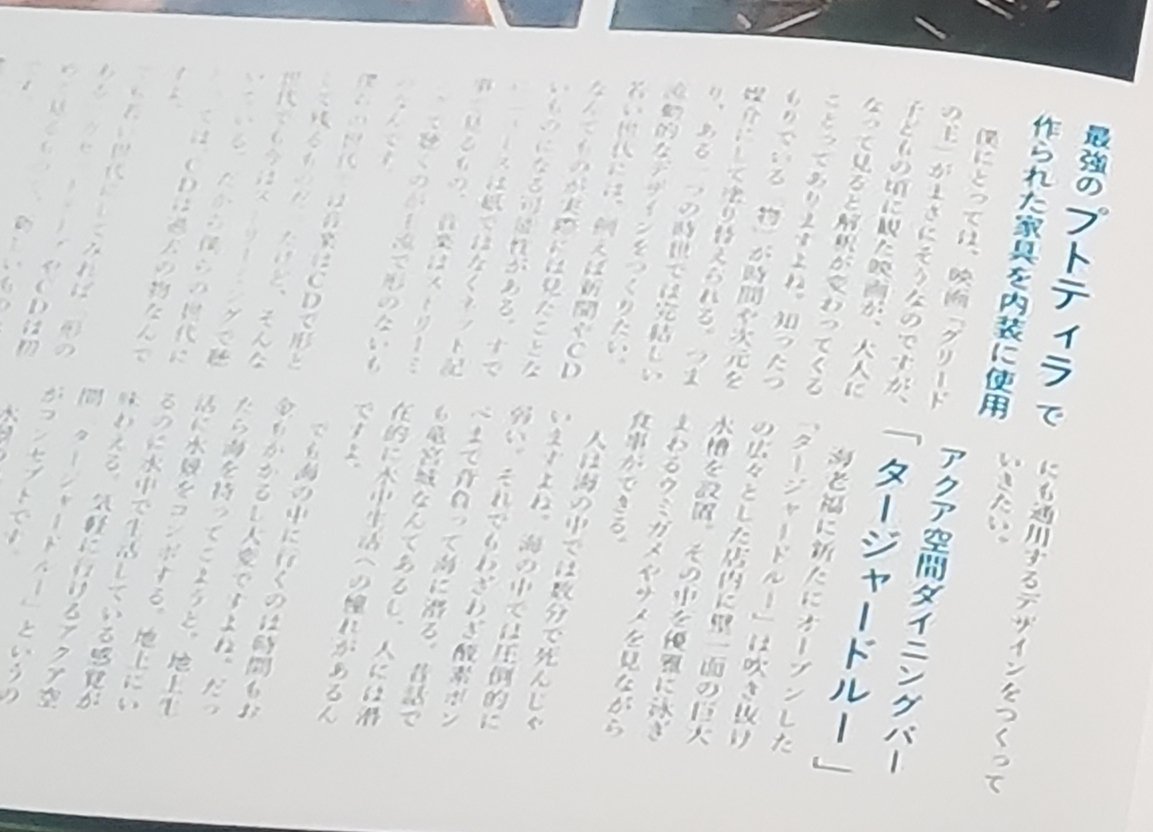 最強のプトティラで
作られた家具を内装に使用
僕にとっては、映画「グリード
の王」がまさにそうなのですが、
子どもの頃に観た映画が、大人に
なって見ると解釈が変わってくる
ことってありますよね。知ったつ
もりでいる「物」が時間や次元を
媒介にして塗り替えられる。つま
り、ある一つの時世では完結しい
流動的なデザインをつくりたい。
若い世代には、例えば新聞やCD
なんてものが実際には見たことな
いものになる可能性がある。すで
にニュースは紙ではなくネット記
事で見るもの、音楽はストリーミ
ングで聴くのが主流で形のないも
のなんです。
僕らの世代は音楽はCDで形と
して残るものだったけど、そんな
世代でも今はストリーミングで聴
いている。だから僕らの世代に
とっては、CDは過去の物なんで
すよ。
でも若い世代にしてみれば、形の
ある
やCDは初
新しいもの
にも通用するデザインをつくって
いきたい。
アクア空間ダイニングバー
「タージャードルー」
海老福に新たにオープンした
「タージャードルー」は吹き抜け
の広々とした店内に壁一面の巨大
水槽を設置。その中を優雅に泳ぎ
まわるウミガメやサメを見ながら
食事ができる。
人は海の中では数分で死んじゃ
いますよね。海の中では圧倒的に
弱い。それでもわざわざ酸素ボン
ベまで背負って海に潜る。昔話で
も竜宮城なんてあるし、人には潜
在的に水中生活への憧れがあるん
ですよ。
でも海の中に行くのは時間もお
金もかかるし大変ですよね。だっ
たら海を持ってこようと、地上生
活に水槽をコンポする。地上にい
るのに水中で生活している感覚が
味わえる。気軽に行けるアクア空
間「タージャードルー」というの
がコンセプトです。